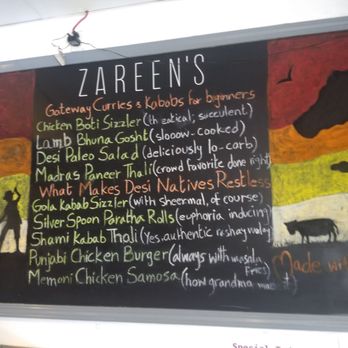 ZAREEN'S
Gateway Curries & Kabobs for biginners
Chicken Boti Sizzler (theatical, succulent)
Lamb Bhuna Gosht (slooow-cooked)
Desi Paleo Salad (deliciously lo-carb)
Madras Paneer Thali (crowd favorite done right)
What Makes Desi Natives Restless
Gola Kabab Sizzler (with sheermal, of course)
Silver Spoon Paratha Rolls (euphoria inducing)
Shami Kabab Thali (Yes, authentic
Punjabi Chicken Burger (always with masala fries)
Memoni Chicken Samosa (how grandma made it)
Made wi